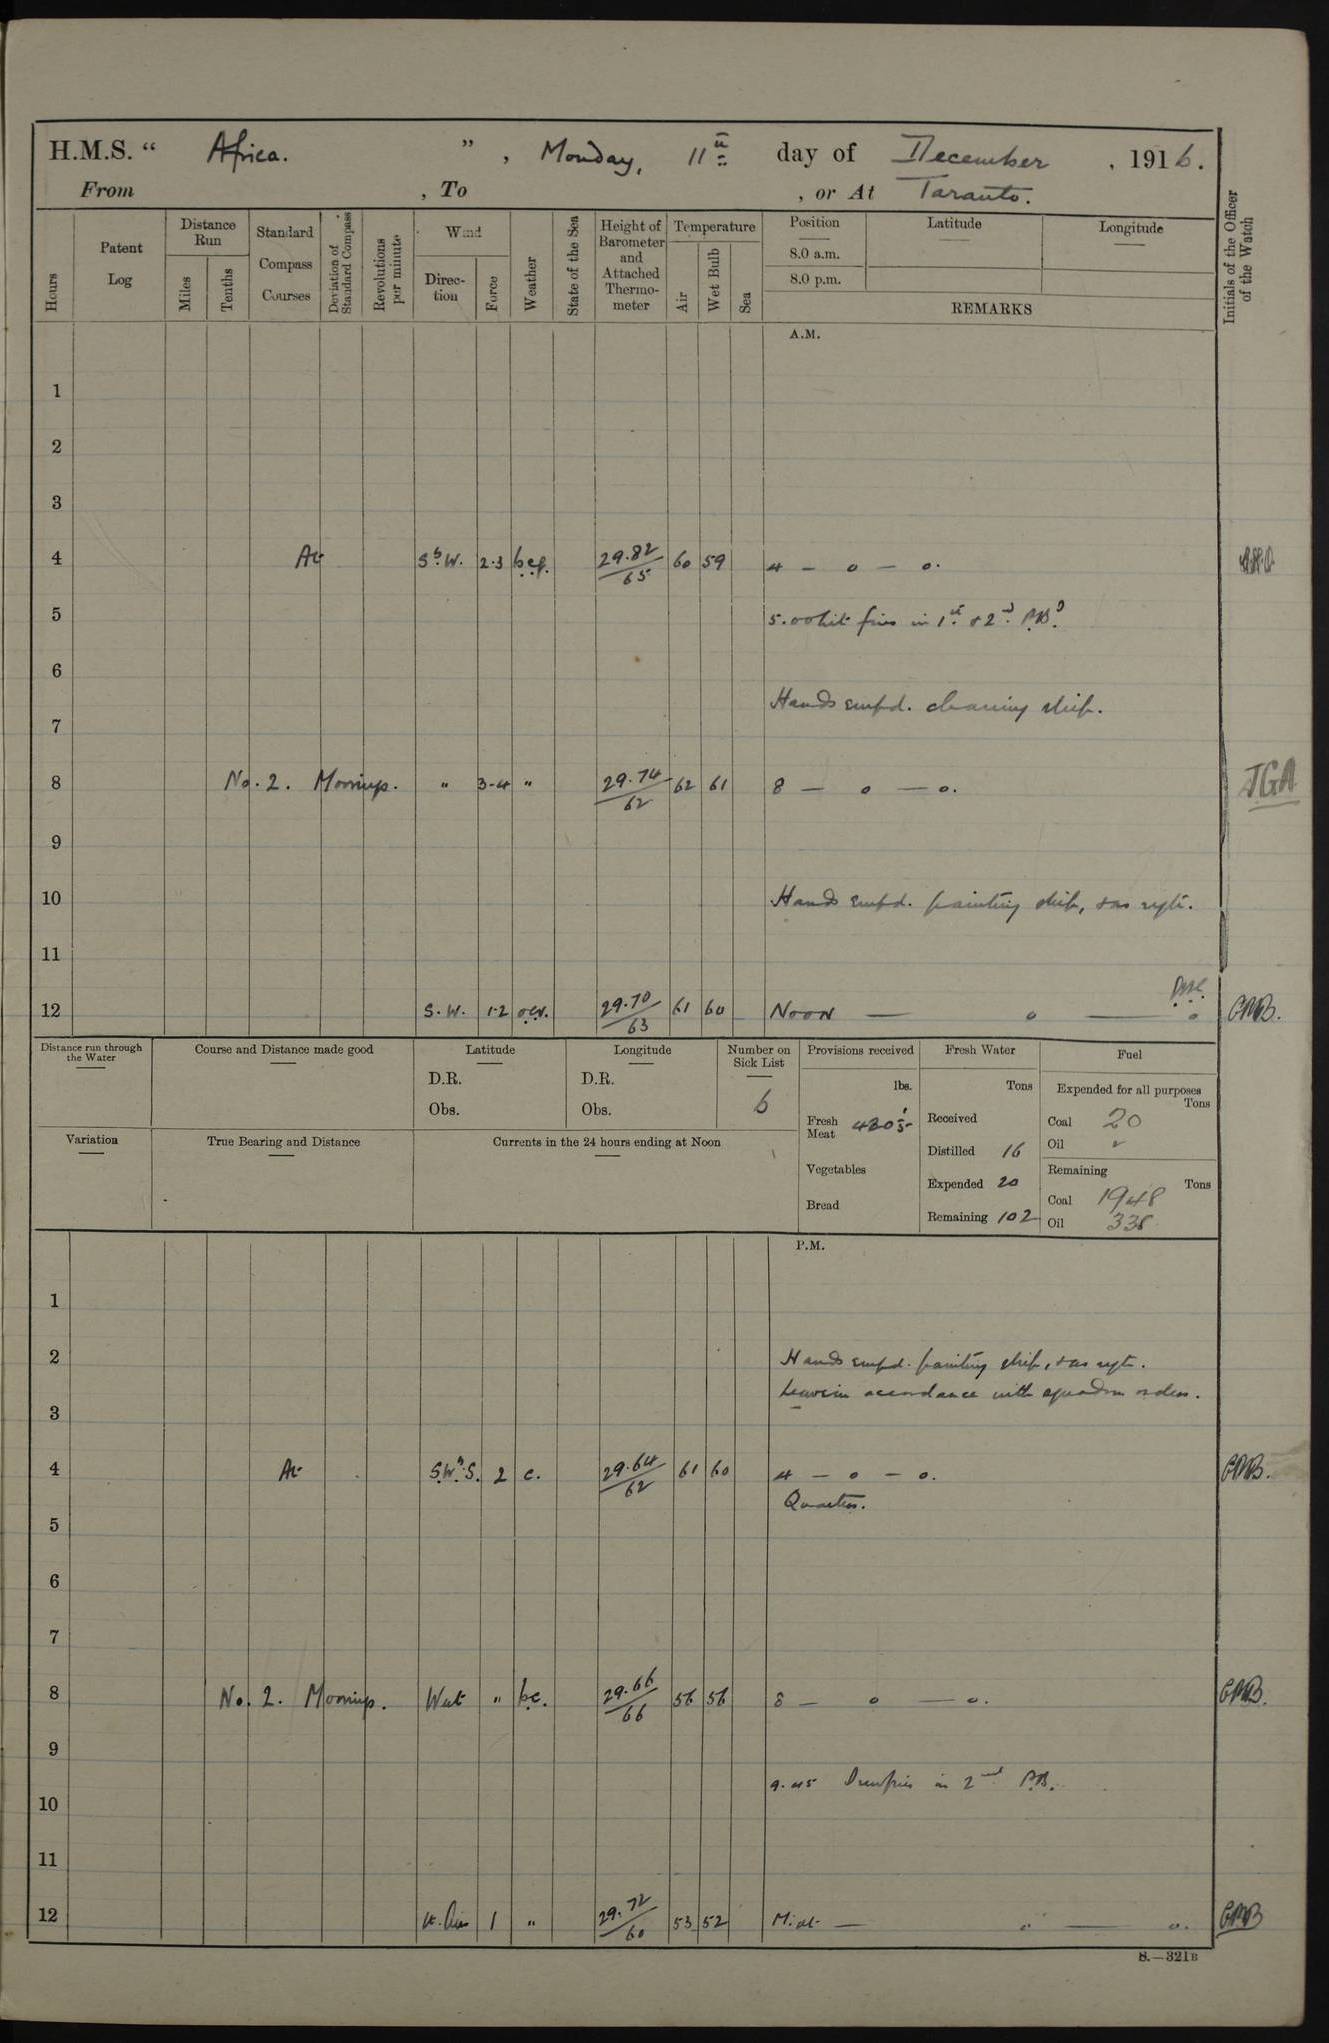 H.M.S. “ Africa. ” , Monday, 11th day of December , 1916.
From , To , or At Taranto.
Hours
Patent Log
Distance Run
Miles
Tenths
Standard Compass Courses
Deviation of Standard Compass
Revolutions per minute
Wind
Direction
Force
Weather
State of the Sea
Height of Barometer and Attached Thermometer
Temperature
Air
Wet Bulb
Sea
Position Latitude Longitude
8.0 a.m.
8.0 p.m.
REMARKS
Initials of the Officer of the Watch
A.M.
1
2
3
4 At SbW. 2·3 bcf. 29.82/65 60 59 4 — o — o.
5 5.00 lit fires in 1st & 2nd P.B.s
6
Hands empd. cleaning ship.
7
8 No. 2. Moorings. " 3-4 " 29.74/62 62 61 8 — o — o. JGA
9
10 Hands empd. painting ship, & as reqte.
11
12 S.W. 1·2 29.70/63 61 60 Noon — o — o
Distance run through the Water
Course and Distance made good
Latitude
D.R.
Obs.
Longitude
D.R.
Obs.
Number on Sick List
6
Provisions received
lbs.
Fresh Meat
Vegetables
Bread
Fresh Water
Tons
Received
Distilled 16
Expended 20
Remaining 102
Fuel
Expended for all purposes
Tons
Coal 20
Oil
Remaining
Tons
Coal 1948
Oil 338
Variation
True Bearing and Distance
Currents in the 24 hours ending at Noon
P.M.
1
2 Hands empd. painting ship, & as reqte.
Leave in accordance with squadron orders.
3
4 At S.WbS. 2 c. 29.64/62 61 60 4 — o — o.
Quarters.
5
6
7
8 No. 2. Moorings. West " bc. 29.66/66 56 56 8 — o — o.
9
9.45 Drew fires in 2nd P.B.
10
11
12 Lt. Airs 1 " 29.72/60 53 52 Midt — o — o.
S.—321B